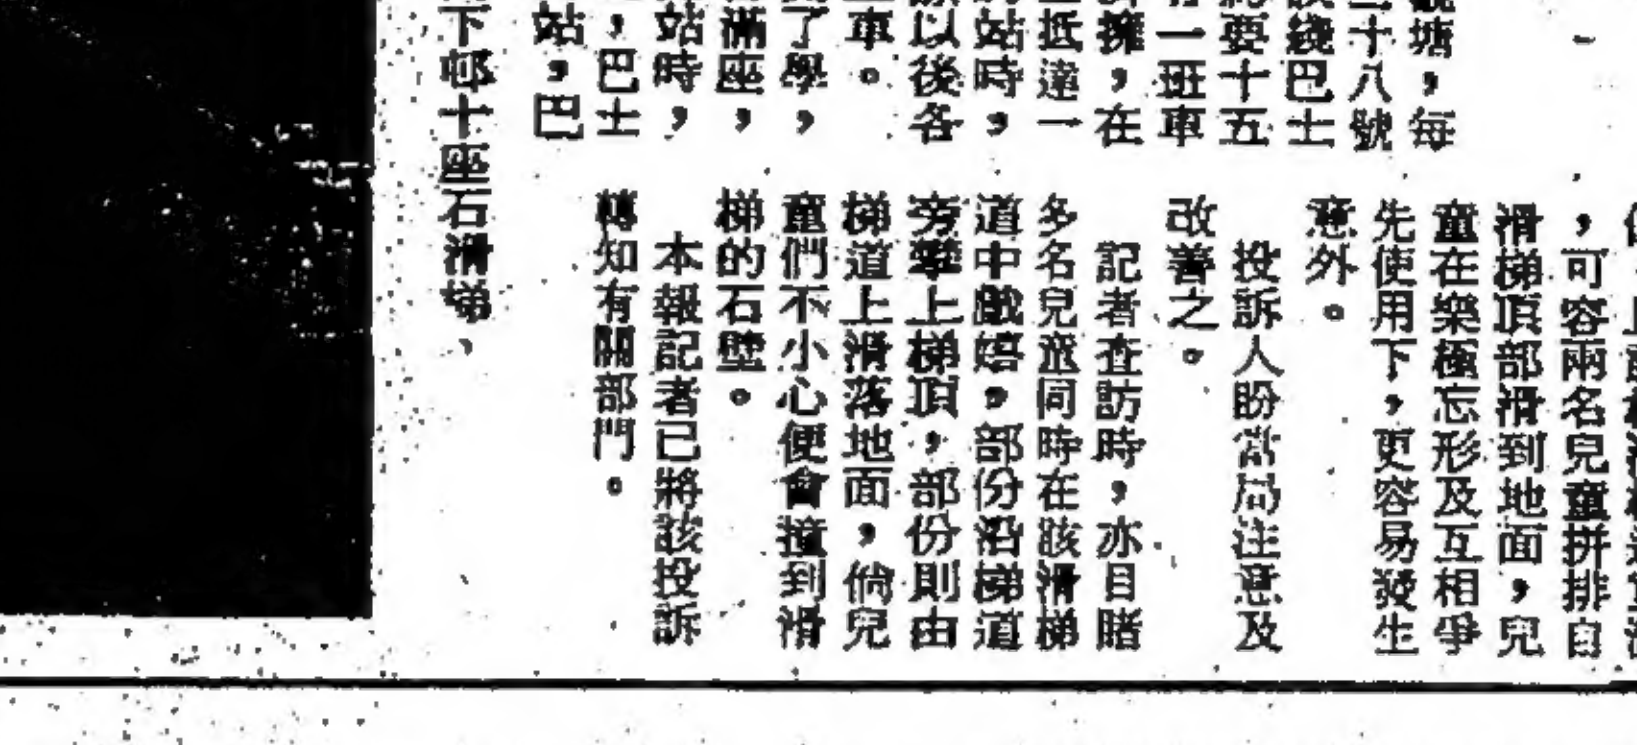 塘，每
十八號
綫巴士
要十五
一班車
擁，在
抵達一
站時，
以後各
車。
了學，
滿座，
站時，
，巴士
站，巴
，可容兩名兒童拼排自
滑梯頂部滑到地面，兒
童在樂極忘形及互相爭
先使用下，更容易發生
意外。
投訴人盼當局注意及
改善之。
記者查訪時，亦目睹
多名兒童同時在該滑梯
道中戲嬉，部份沿梯道
旁攀上梯頂，部份則由
梯道上滑落地面，倘兒
童們不小心便會撞到滑
梯的石壁。
本報記者已將該投訴
轉知有關部門。
下邨十座石滑梯、